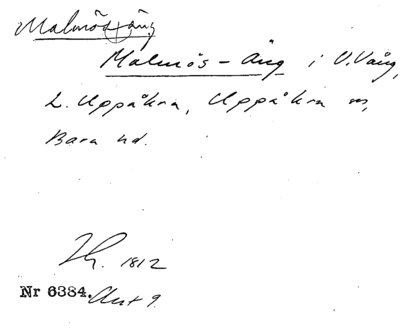 Malmös äng
Malmös - Äng i V. Vång,
L. Uppåkra, Uppåkra sn,
Bara hd.
1812
Nr 6384. Akt 9.